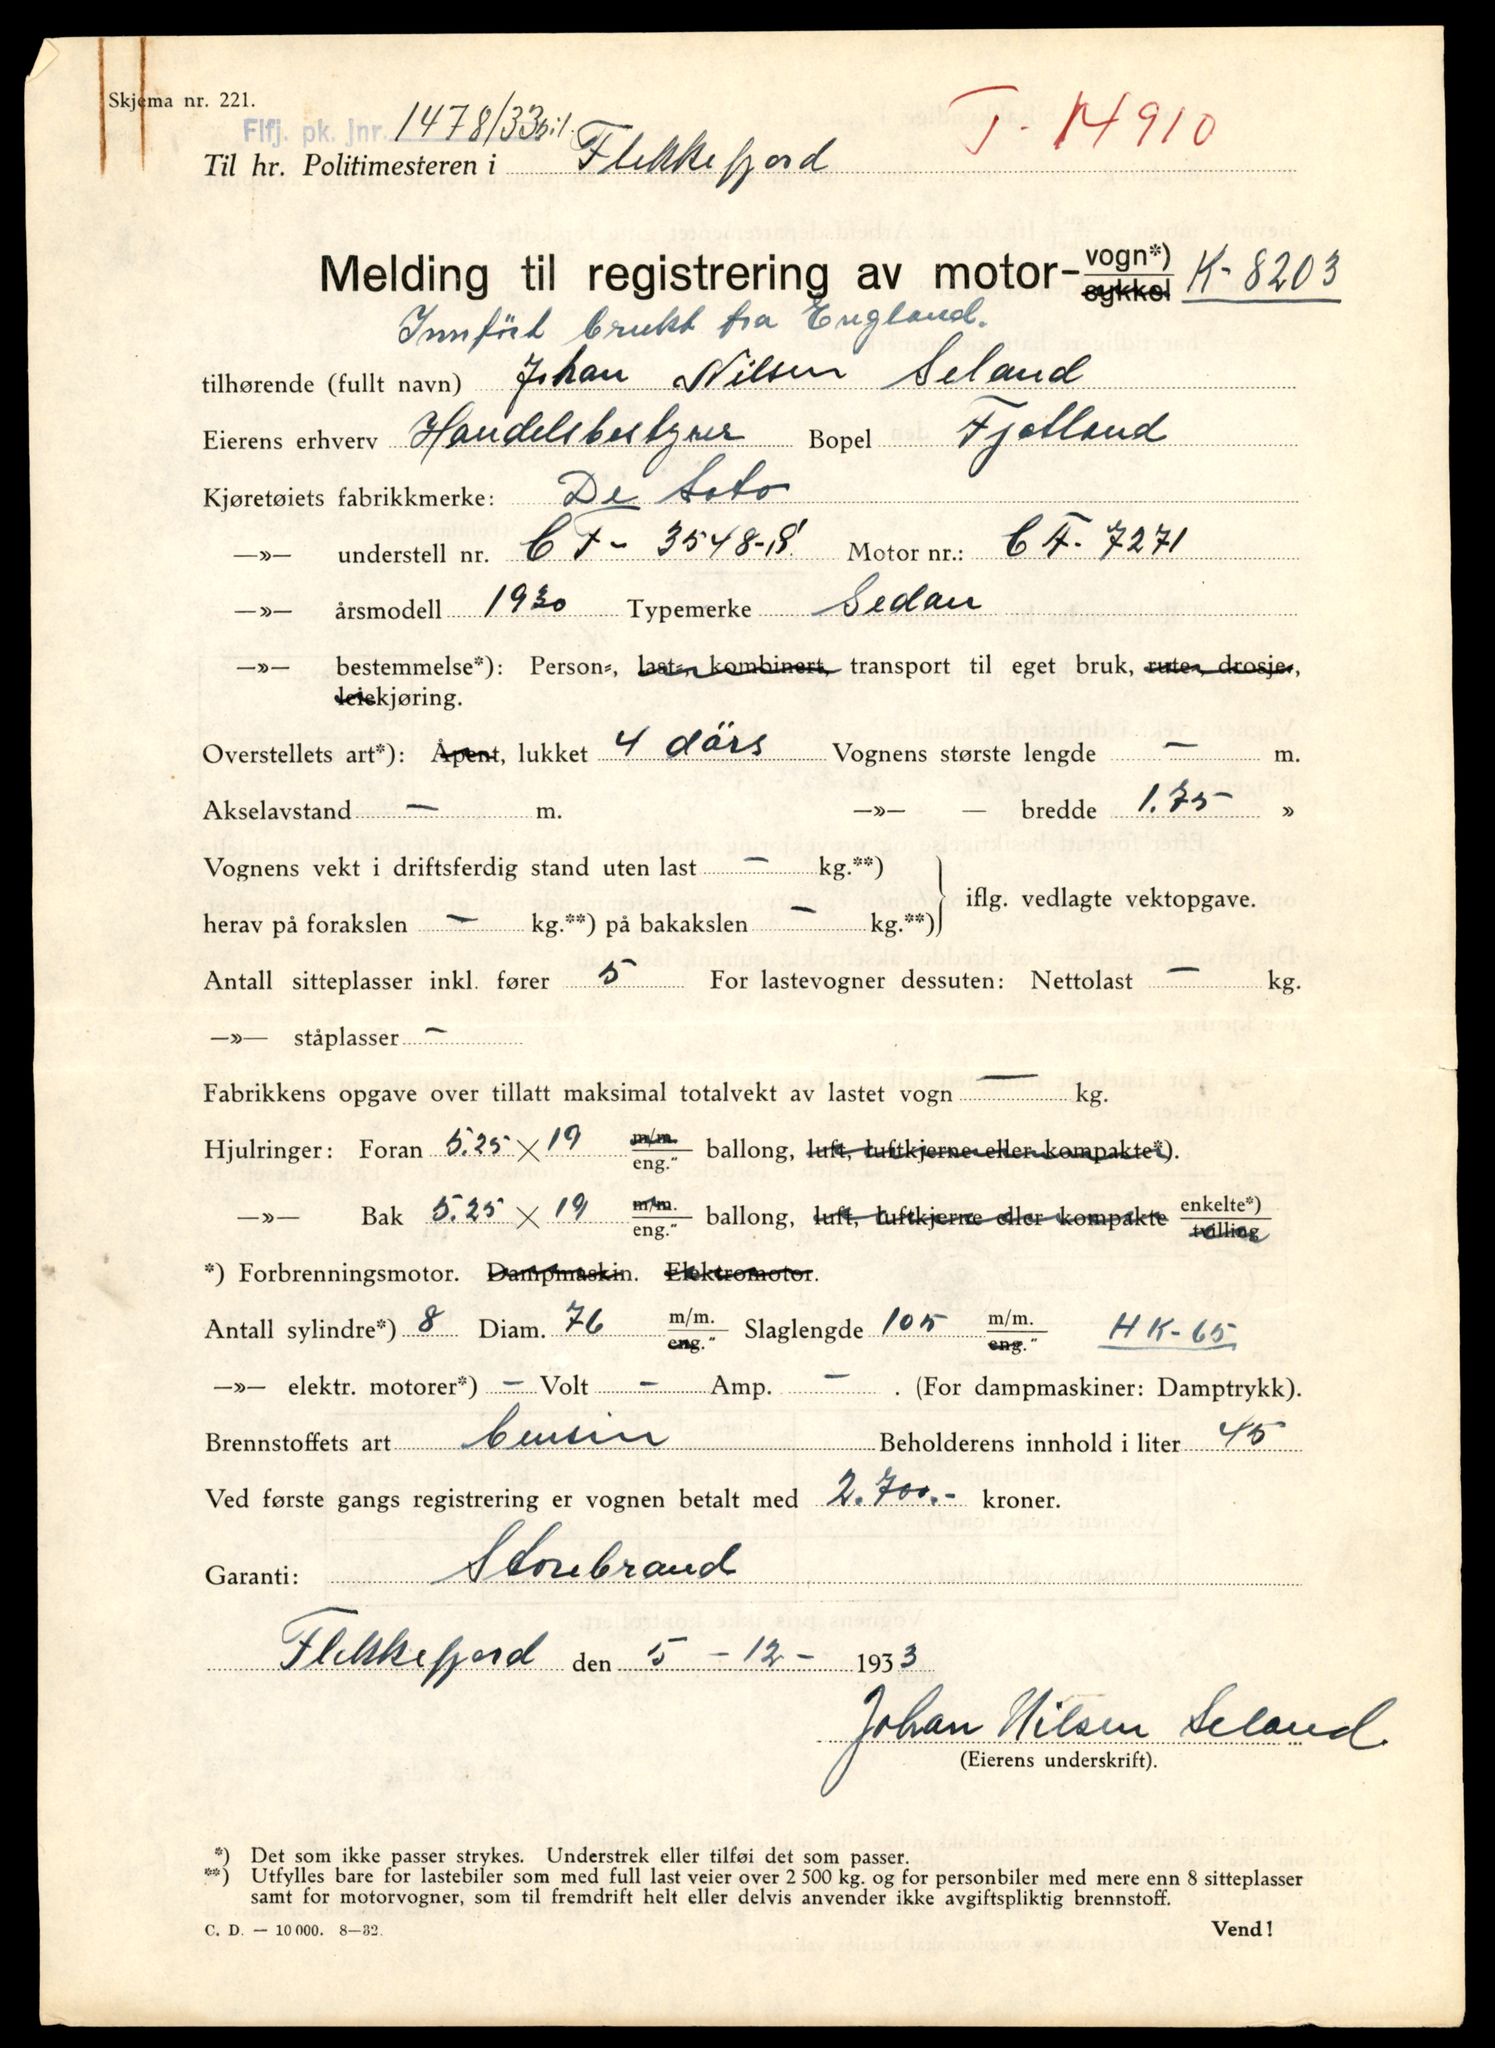 Skjema nr. 221.
Flfj. pk. jnr. 1478/33 bil.
T-14910
Til hr. Politimesteren i Flekkefjord
Melding til registrering av motor-vogn*) sykkel K-8203
Innført brukt fra England.
tilhørende (fullt navn) Johan Nilsen Seland
Eierens erhverv Handelsbestyrer Bopel Fjotland
Kjøretøiets fabrikkmerke: De Soto
—»— understell nr. CF- 3548- Motor nr.: CF. 7271
—»— årsmodell 1930 Typemerke Sedan
—»— bestemmelse*): Person-, last-, kombinert, transport til eget bruk, rute-, drosje-,
leiekjøring.
Overstellets art*): Åpent, lukket 4 dörs Vognens største lengde — m.
Akselavstand — m. —»— — bredde 1.75 »
Vognens vekt i driftsferdig stand uten last — kg.**)
herav på forakslen — kg.**) på bakakslen — kg.**) iflg. vedlagte vektopgave.
Antall sitteplasser inkl. fører 5 For lastevogner dessuten: Nettolast — kg.
—»— ståplasser —
Fabrikkens opgave over tillatt maksimal totalvekt av lastet vogn — kg.
Hjulringer: Foran 5.25 × 19 m/m. eng." ballong, luft, luftkjerne eller kompakte*).
—»— Bak 5.25 × 19 m/m. eng." ballong, luft, luftkjerne eller kompakte enkelte*) tvilling
*) Forbrenningsmotor. Dampmaskin. Elektromotor.
Antall sylindre*) 8 Diam. 76 m/m. eng." Slaglengde 105 m/m. eng." HK-65
—»— elektr. motorer*) — Volt — Amp. — . (For dampmaskiner: Damptrykk).
Brennstoffets art bensin Beholderens innhold i liter 45
Ved første gangs registrering er vognen betalt med 2.700.- kroner.
Garanti: Storebrand
Flekkefjord den 5 - 12 - 1933
Johan Nilsen Seland.
(Eierens underskrift).
*) Det som ikke passer strykes. Understrek eller tilføi det som passer.
**) Utfylles bare for lastebiler som med full last veier over 2 500 kg. og for personbiler med mere enn 8 sitteplasser
samt for motorvogner, som til fremdrift helt eller delvis anvender ikke avgiftspliktig brennstoff.
C. D. — 10 000. 8—32.
Vend!